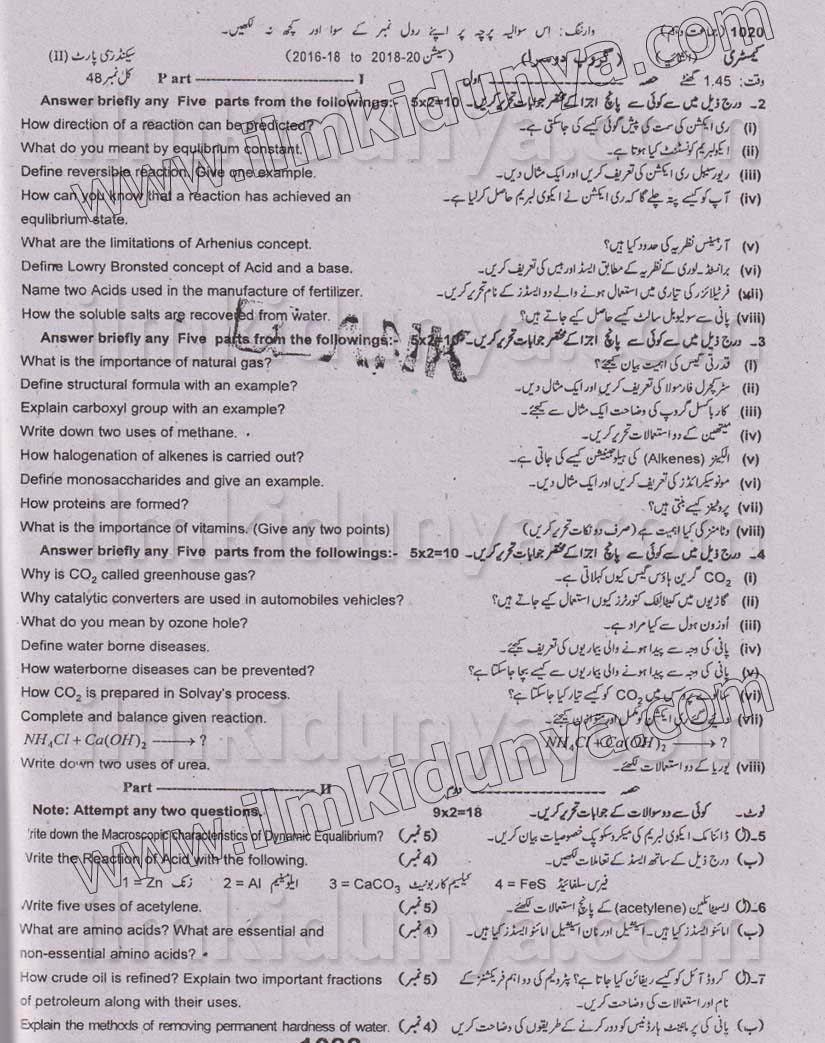 وارننگ: اس سوالیہ پرچہ پر اپنے رول نمبر کے سوا اور کچھ نہ لکھیں۔
1020
کیمسٹری (گروپ دوسرا) (سیشن 2018-20 to 2016-18) سیکنڈری پارٹ (II)
وقت: 1.45 گھنٹے حصہ اول Part I کل نمبر 48
Answer briefly any Five parts from the followings:- 5x2=10 2۔ درج ذیل میں سے کوئی سے پانچ اجزا کے مختصر جوابات تحریر کریں۔
How direction of a reaction can be predicted? (i) ری ایکشن کی سمت کی پیش گوئی کیسے کی جاسکتی ہے۔
What do you meant by equlibrium constant. (ii) ایکولبریم کونسٹنٹ کیا ہوتا ہے۔
Define reversible reaction. Give one example. (iii) ریورسیبل ری ایکشن کی تعریف کریں اور ایک مثال دیں۔
How can you know that a reaction has achieved an (iv) آپ کو کیسے پتہ چلے گا کہ ری ایکشن نے ایکوی لبریم حاصل کر لیا ہے۔
equlibrium state.
What are the limitations of Arhenius concept. (v) آرہینئس نظریہ کی حدود کیا ہیں؟
Define Lowry Bronsted concept of Acid and a base. (vi) برانسٹڈ۔لوری کے نظریہ کے مطابق ایسڈ اور بیس کی تعریف کریں۔
Name two Acids used in the manufacture of fertilizer. (vii) فرٹیلائزر کی تیاری میں استعمال ہونے والے دو ایسڈز کے نام تحریر کریں۔
How the soluble salts are recovered from water. (viii) پانی سے سولیوبل سالٹ کیسے حاصل کیے جاتے ہیں؟
Answer briefly any Five parts from the followings:- 5x2=10 3۔ درج ذیل میں سے کوئی سے پانچ اجزا کے مختصر جوابات تحریر کریں۔
What is the importance of natural gas? (i) قدرتی گیس کی اہمیت بیان کیجئے؟
Define structural formula with an example? (ii) سٹرکچرل فارمولا کی تعریف کریں اور ایک مثال دیں۔
Explain carboxyl group with an example? (iii) کاربوکسل گروپ کی وضاحت ایک مثال سے کیجئے۔
Write down two uses of methane. (iv) میتھین کے دو استعمالات تحریر کریں۔
How halogenation of alkenes is carried out? (v) الکینز (Alkenes) کی ہیلوجینیشن کیسے کی جاتی ہے۔
Define monosaccharides and give an example. (vi) مونوسیکرائڈز کی تعریف کریں اور ایک مثال دیں۔
How proteins are formed? (vii) پروٹینز کیسے بنتی ہیں؟
What is the importance of vitamins. (Give any two points) (viii) وٹامنز کی کیا اہمیت ہے (صرف دو نکات تحریر کریں)
Answer briefly any Five parts from the followings:- 5x2=10 4۔ درج ذیل میں سے کوئی سے پانچ اجزا کے مختصر جوابات تحریر کریں۔
Why is CO₂ called greenhouse gas? (i) CO₂ گرین ہاؤس گیس کیوں کہلاتی ہے۔
Why catalytic converters are used in automobiles vehicles? (ii) گاڑیوں میں کیٹالیٹک کنورٹرز کیوں استعمال کیے جاتے ہیں؟
What do you mean by ozone hole? (iii) اوزون ہول سے کیا مراد ہے۔
Define water borne diseases. (iv) پانی کی وجہ سے پیدا ہونے والی بیماریوں کی تعریف کیجئے۔
How waterborne diseases can be prevented? (v) پانی کی وجہ سے پیدا ہونے والی بیماریوں سے کیسے بچا جاسکتا ہے؟
How CO₂ is prepared in Solvay's process. (vi) سالوے پروسس میں CO₂ کو کیسے تیار کیا جاسکتا ہے؟
Complete and balance given reaction. (vii) دیے گئے ری ایکشن کو مکمل اور متوازن کیجئے۔
NH₄Cl + Ca(OH)₂ ⟶ ? NH₄Cl + Ca(OH)₂ ⟶ ?
Write down two uses of urea. (viii) یوریا کے دو استعمالات لکھئے۔
Part II حصہ دوم
Note: Attempt any two questions. 9x2=18 نوٹ۔ کوئی سے دو سوالات کے جوابات تحریر کریں۔
rite down the Macroscopic Characteristics of Dynamic Equalibrium? (5 نمبر) 5۔(ا) ڈائنامک ایکوی لبریم کی میکروسکوپک خصوصیات بیان کریں۔
Write the Reaction of Acid with the following. (4 نمبر) (ب) درج ذیل کے ساتھ ایسڈ کے تعاملات لکھیں۔
1 = Zn زنک 2 = Al ایلومینیم 3 = CaCO₃ کیلسیم کاربونیٹ 4 = FeS فیرس سلفائیڈ
Write five uses of acetylene. (5 نمبر) 6۔(ا) ایسیٹائلین (acetylene) کے پانچ استعمالات لکھئے۔
What are amino acids? What are essential and (4 نمبر) (ب) امائنو ایسڈز کیا ہیں۔ ایسینشیل اور نان ایسینشیل امائنو ایسڈز کیا ہیں۔
non-essential amino acids?
How crude oil is refined? Explain two important fractions (5 نمبر) 7۔(ا) کروڈ آئل کو کیسے ریفائن کیا جاتا ہے؟ پٹرولیم کی دو اہم فریکشنز کے
of petroleum along with their uses. نام اور استعمالات کی وضاحت کریں۔
Explain the methods of removing permanent hardness of water. (4 نمبر) (ب) پانی کی پرماننٹ ہارڈنیس کو دور کرنے کے طریقوں کی وضاحت کریں
www.ilmkidunya.com
www.ilmkidunya.com
ilmkidunya.com
ilmkidunya.com
ilmkidunya.com